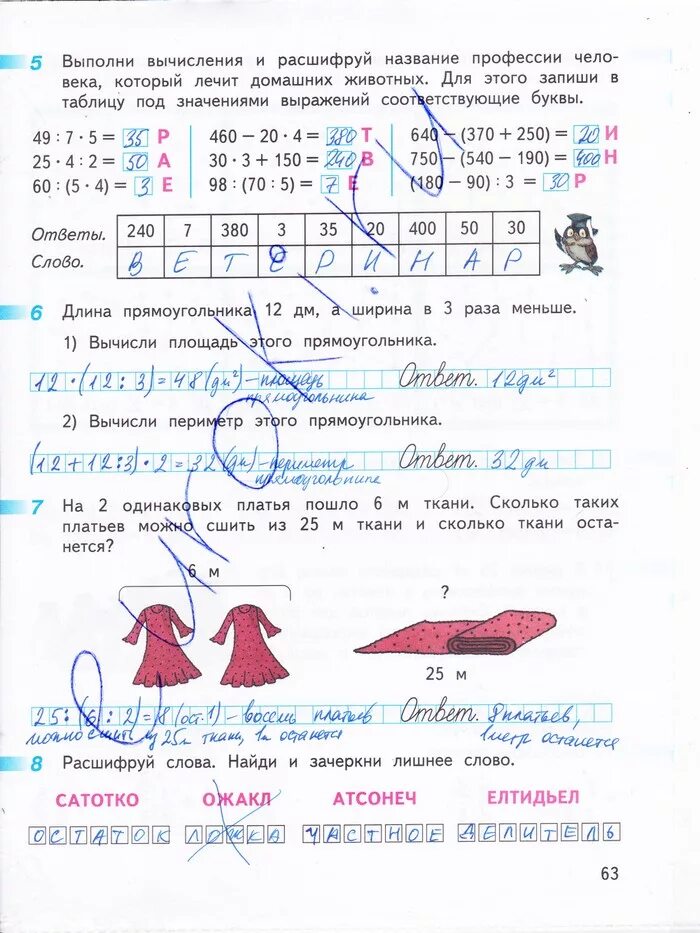 5 Выполни вычисления и расшифруй название профессии чело-
века, который лечит домашних животных. Для этого запиши в
таблицу под значениями выражений соответствующие буквы.
49 : 7 · 5 = 35 Р 460 − 20 · 4 = 380 Т 640 − (370 + 250) = 20 И
25 · 4 : 2 = 50 А 30 · 3 + 150 = 240 В 750 − (540 − 190) = 400 Н
60 : (5 · 4) = 3 Е 98 : (70 : 5) = 7 Е (180 − 90) : 3 = 30 Р
Ответы. 240 7 380 3 35 20 400 50 30
Слово. В Е Т Е Р И Н А Р
6 Длина прямоугольника 12 дм, а ширина в 3 раза меньше.
1) Вычисли площадь этого прямоугольника.
12 · (12 : 3) = 48 (дм²) – площадь Ответ. 12 дм²
прямоугольника
2) Вычисли периметр этого прямоугольника.
(12 + 12 : 3) · 2 = 32 (дм) – периметр Ответ. 32 дм
прямоугольника
7 На 2 одинаковых платья пошло 6 м ткани. Сколько таких
платьев можно сшить из 25 м ткани и сколько ткани оста-
нется?
6 м
?
25 м
25 : (6 : 2) = 8 (ост. 1) – восемь платьев Ответ. 8 платьев,
можно сшить из 25 м ткани, 1 м останется 1 метр останется
8 Расшифруй слова. Найди и зачеркни лишнее слово.
САТОТКО ОЖАКЛ АТСОНЕЧ ЕЛТИДЬЕЛ
ОСТАТОК ЛОЖКА ЧАСТНОЕ ДЕЛИТЕЛЬ
63